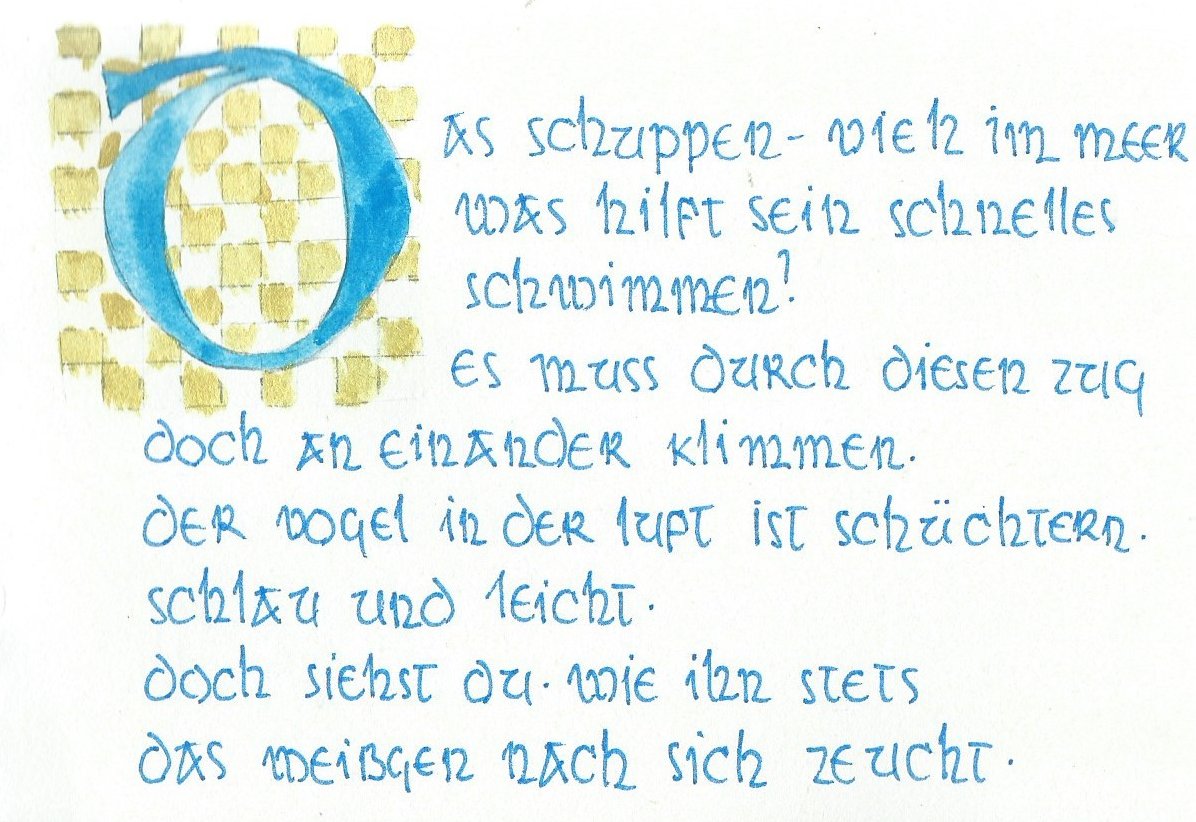 DAS SCHUPPEN-VIEH IM MEER
WAS HILFT SEIN SCHNELLES
SCHWIMMEN?
ES MUSS DURCH DIESEN ZUG
DOCH AN EINANDER KLIMMEN.
DER VOGEL IN DER LUFT IST SCHÜCHTERN.
SCHLAU UND LEICHT.
DOCH SIEHST DU. WIE IHN STETS
DAS WEIßGEN NACH SICH ZEUCHT.